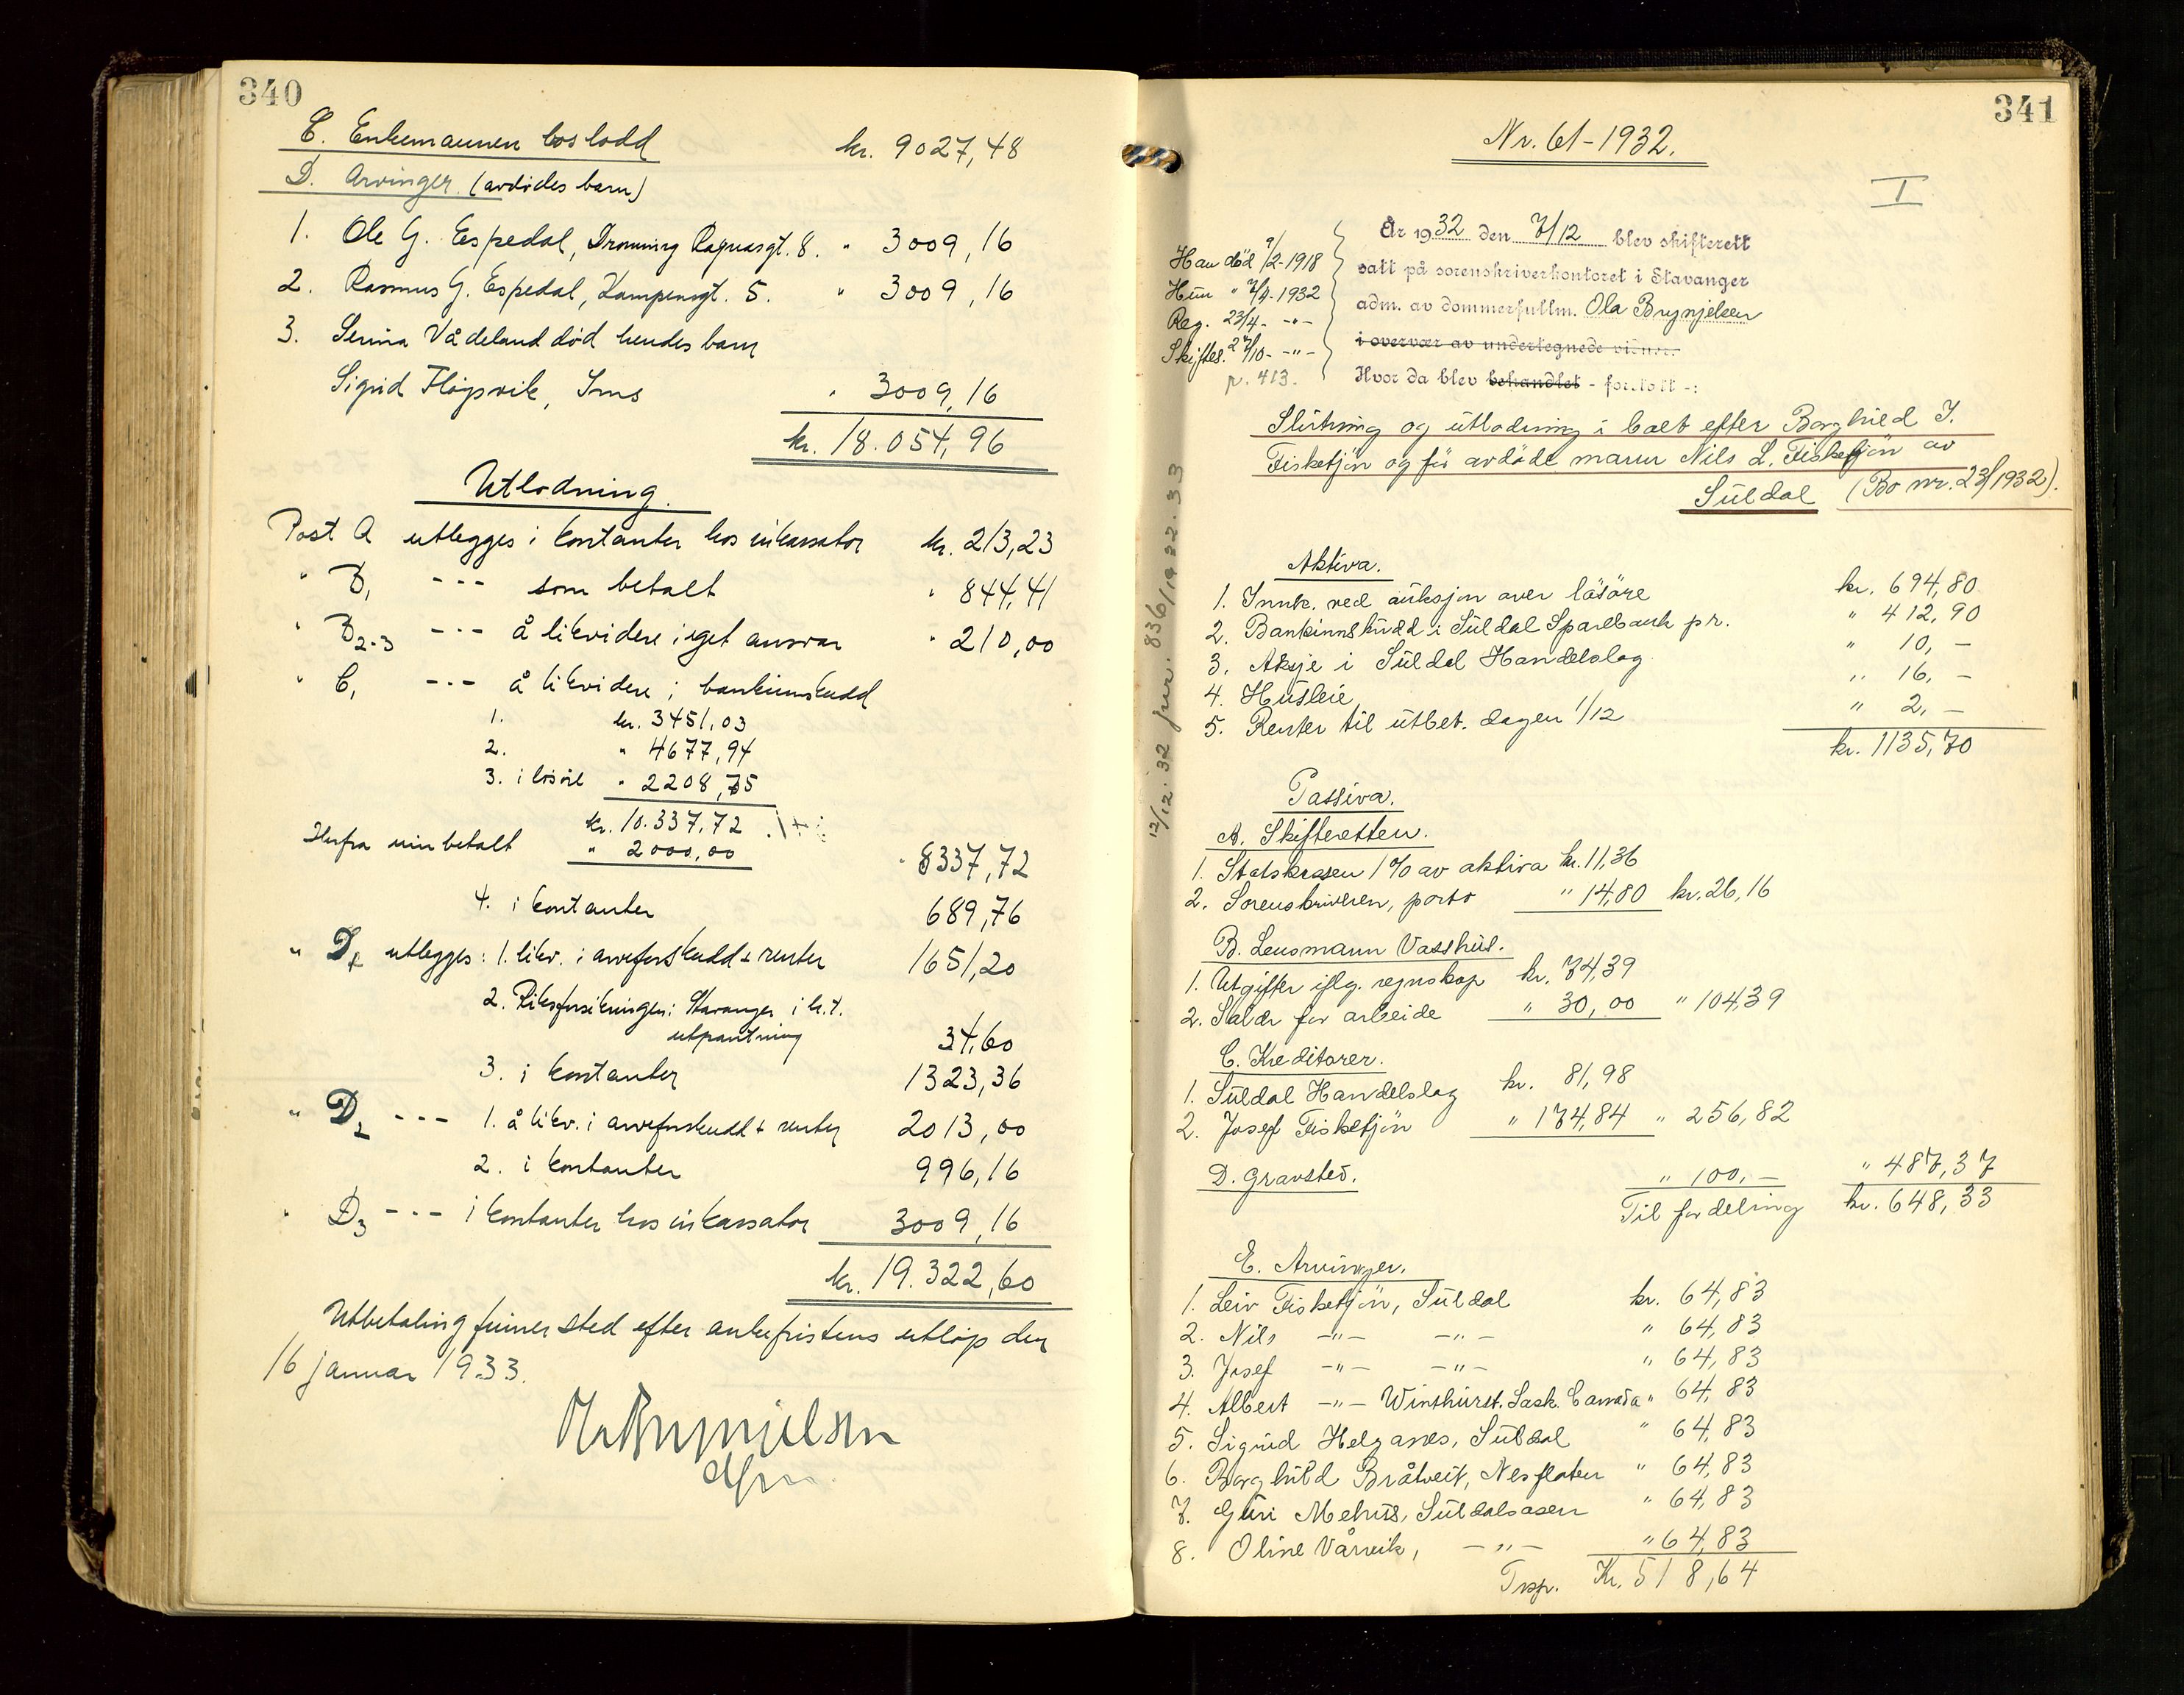 340
C. Enkemannen boslodd kr. 9027,48
D. Arvinger (avdødes barn)
1. Ole G. Espedal, Dronning Ragnasgt. 8. " 3009,16
2. Rasmus G. Espedal, Kampensgt. 5. " 3009,16
3. Serina Vådeland død hendes barn
Sigrid Fløysvik, Ims " 3009,16
kr. 18.054,96
Utlodning
Post A utlegges i kontanter hos inkassator kr. 213,23
" B1 -"- som betalt " 844,41
" B2-3 -"- å likvidere i eget ansvar " 210,00
" C1 -"- å likvidere i bankinnskudd
1. kr. 3451,03
2. " 4677,94
3. i løsøre " 2208,75
kr. 10.337,72
Herfra innbetalt " 2000,00 " 8337,72
4. i kontanter 689,76
" D1 utlegges: 1. likv. i arveforskudd + renter 1651,20
2. Riksforsikringen: Stavanger i h.t.
utpantning 34,60
3. i kontanter 1323,36
" D2 -"- 1. å likv. i arveforskudd + renter 2013,00
2. i kontanter 996,16
" D3 -"- i kontanter hos inkassator 3009,16
kr. 19.322,60
Utbetaling finner sted efter ankefristens utløp den
16 januar 1933.
Ola Brynjelsen
dfm
341
Nr. 61-1932.
I
År 1932 den 7/12 blev skifterett
satt på sorenskriverkontoret i Stavanger
adm. av dommerfullm. Ola Brynjelsen
i overvær av undertegnede vidner.
Hvor da blev behandlet - foretatt -:
Han död 9/2-1918
Hun " 7/4-1932
Reg. 23/4- -"-
Skiftes. 27/10- -"-
p. 413.
12/12. 32 jnr. 836/1932.33
Slutning og utlodning i boet efter Borghild J.
Fisketjön og för avdöde mann Nils L. Fisketjön av
Suldal (Bo nr. 23/1932).
Aktiva.
1. Innk. ved auksjon over lösöre kr. 694,80
2. Bankinnskudd i Suldal Sparebank pr. " 412,90
3. Aksje i Suldal Handelslag " 10,-
4. Husleie " 16,-
5. Renter til utbet. dagen 1/12 " 2,-
kr. 1135,70
Passiva.
A. Skifteretten.
1. Statskassen 1% av aktiva kr. 11,36
2. Sorenskriveren, porto " 14,80 kr. 26,16
B. Lensmann Vasshus.
1. Utgifter iflg. regnskap kr. 74,39
2. Salær for arbeide " 30,00 " 104,39
C. Kreditorer.
1. Suldal Handelslag kr. 81,98
2. Josef Fisketjön " 174,84 " 256,82
D. Gravsted. " 100,- " 487,37
Til fordeling kr. 648,33
E. Arvinger.
1. Leiv Fisketjön, Suldal kr. 64,83
2. Nils -"- -"- " 64,83
3. Josef -"- -"- " 64,83
4. Albert -"- Winthurst, Sask. Canada " 64,83
5. Sigrid Helganes, Suldal " 64,83
6. Borghild Bråtveit, Nesflaten " 64,83
7. Guri Mehus, Suldalsosen " 64,83
8. Oline Vårvik, -"- " 64,83
Trsp. Kr. 518,64